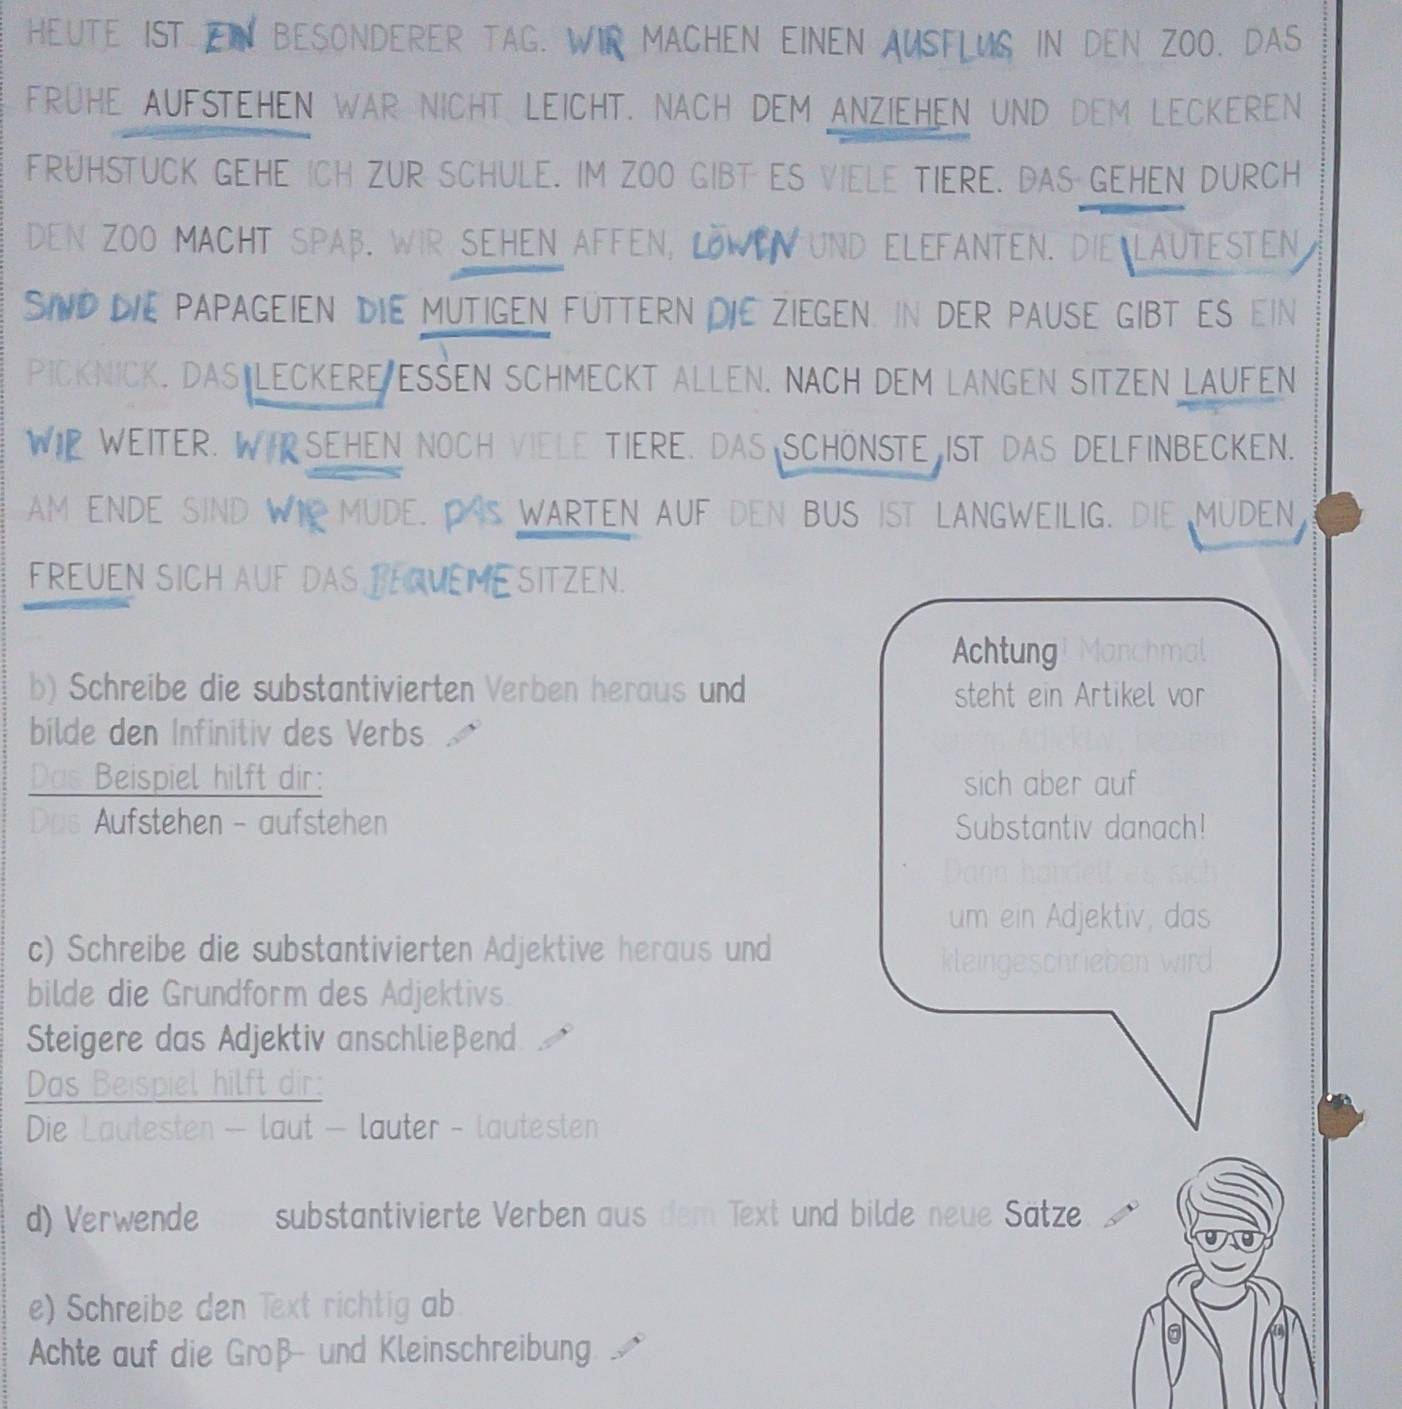 HEUTE IST EIN BESONDERER TAG. WIR MACHEN EINEN AUSFLUG IN DEN ZOO. DAS
FRÜHE AUFSTEHEN WAR NICHT LEICHT. NACH DEM ANZIEHEN UND DEM LECKEREN
FRÜHSTÜCK GEHE ICH ZUR SCHULE. IM ZOO GIBT ES VIELE TIERE. DAS GEHEN DURCH
DEN ZOO MACHT SPAß. WIR SEHEN AFFEN, LÖWEN UND ELEFANTEN. DIE LAUTESTEN
SIND DIE PAPAGEIEN DIE MUTIGEN FÜTTERN DIE ZIEGEN. IN DER PAUSE GIBT ES EIN
PICKNICK. DAS LECKERE ESSEN SCHMECKT ALLEN. NACH DEM LANGEN SITZEN LAUFEN
WIR WEITER. WIR SEHEN NOCH VIELE TIERE. DAS SCHÖNSTE IST DAS DELFINBECKEN.
AM ENDE SIND WIR MÜDE. DAS WARTEN AUF DEN BUS IST LANGWEILIG. DIE MÜDEN
FREUEN SICH AUF DAS BEQUEME SITZEN.
Achtung! Manchmal
steht ein Artikel vor
einem Adjektiv, bezieht
sich aber auf
Substantiv danach!
Dann handelt es sich
um ein Adjektiv, das
kleingeschrieben wird.
b) Schreibe die substantivierten Verben heraus und
bilde den Infinitiv des Verbs
Das Beispiel hilft dir:
Das Aufstehen - aufstehen
c) Schreibe die substantivierten Adjektive heraus und
bilde die Grundform des Adjektivs
Steigere das Adjektiv anschließend.
Das Beispiel hilft dir:
Die Lautesten – laut – lauter - lautesten
d) Verwende substantivierte Verben aus dem Text und bilde neue Sätze
e) Schreibe den Text richtig ab
Achte auf die Groß- und Kleinschreibung